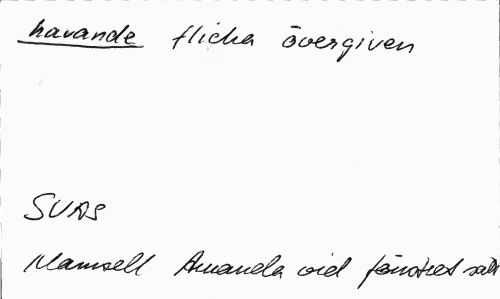 havande flicka övergiven
SVAS
Mamsell Amanda vid fönstret satt